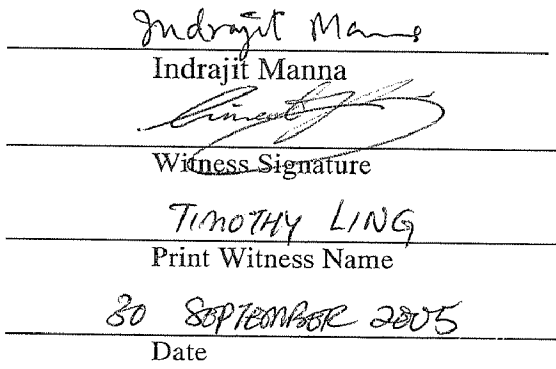 Indrajit Manna
Indrajit Manna
Witness Signature
TIMOTHY LING
Print Witness Name
30 SEPTEMBER 2005
Date